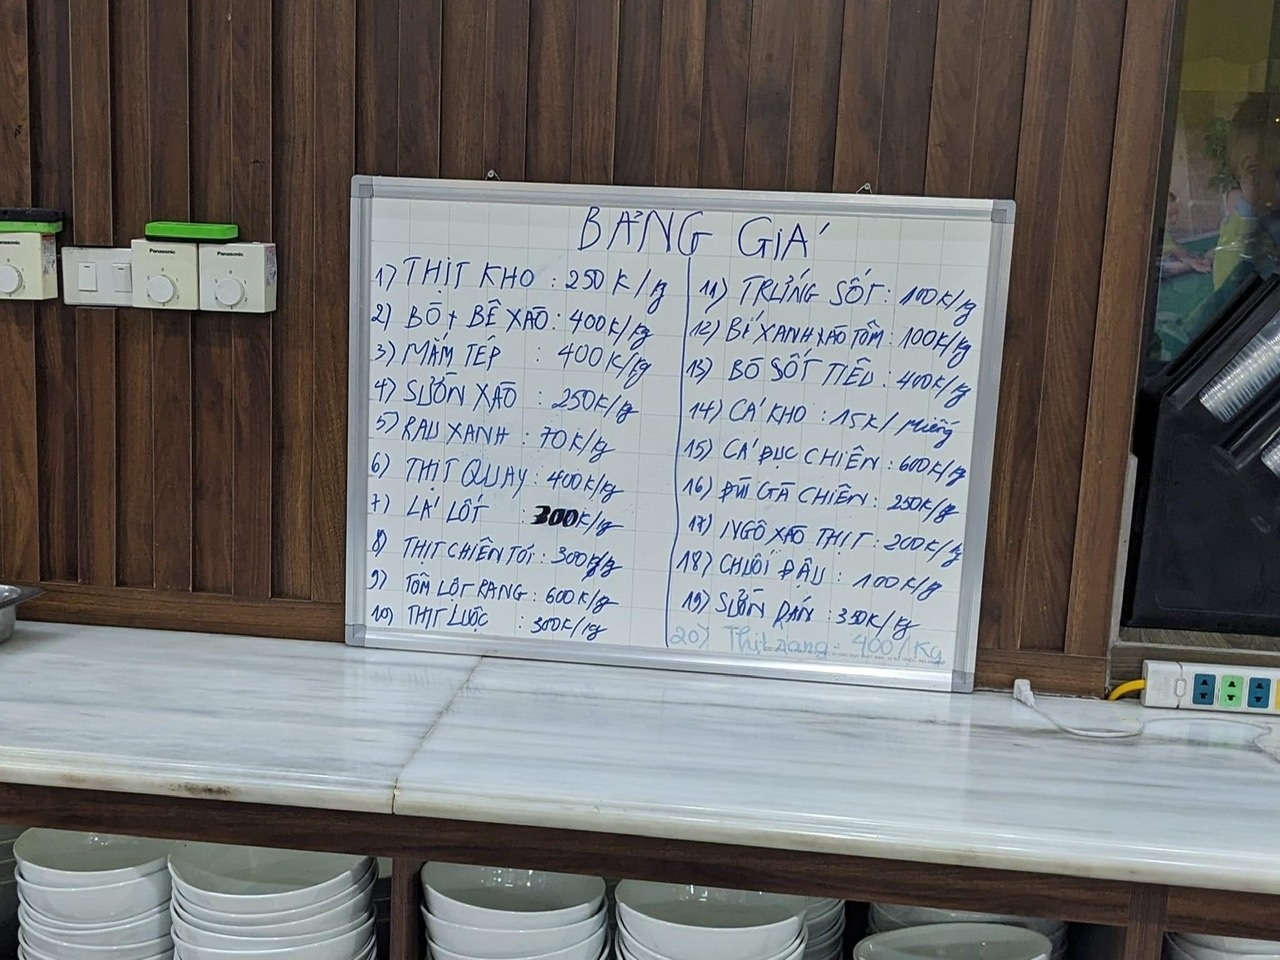 BẢNG GIÁ
1) THỊT KHO : 250K/kg
2) BÒ + BÊ XÀO : 400K/kg
3) MẮM TÉP : 400K/kg
4) SƯỜN XÀO : 250K/kg
5) RAU XANH : 70K/kg
6) THỊT QUAY : 400K/kg
7) LÁ LỐT : 300K/kg
8) THỊT CHIÊN TỎI : 300K/kg
9) TÔM LỘT RANG : 600K/kg
10) THỊT LUỘC : 300K/kg
11) TRỨNG SỐT : 100K/kg
12) BÍ XANH XÀO TÔM : 100K/kg
13) BÒ SỐT TIÊU : 400K/kg
14) CÁ KHO : 15K/ Miếng
15) CÁ ĐỤC CHIÊN : 600K/kg
16) ĐÙI GÀ CHIÊN : 250K/kg
17) NGÔ XÀO THỊT : 200K/kg
18) CHUỐI ĐẬU : 100K/kg
19) SƯỜN RÁN : 350K/kg
20) Thịt rang : 400/Kg
Panasonic
Panasonic